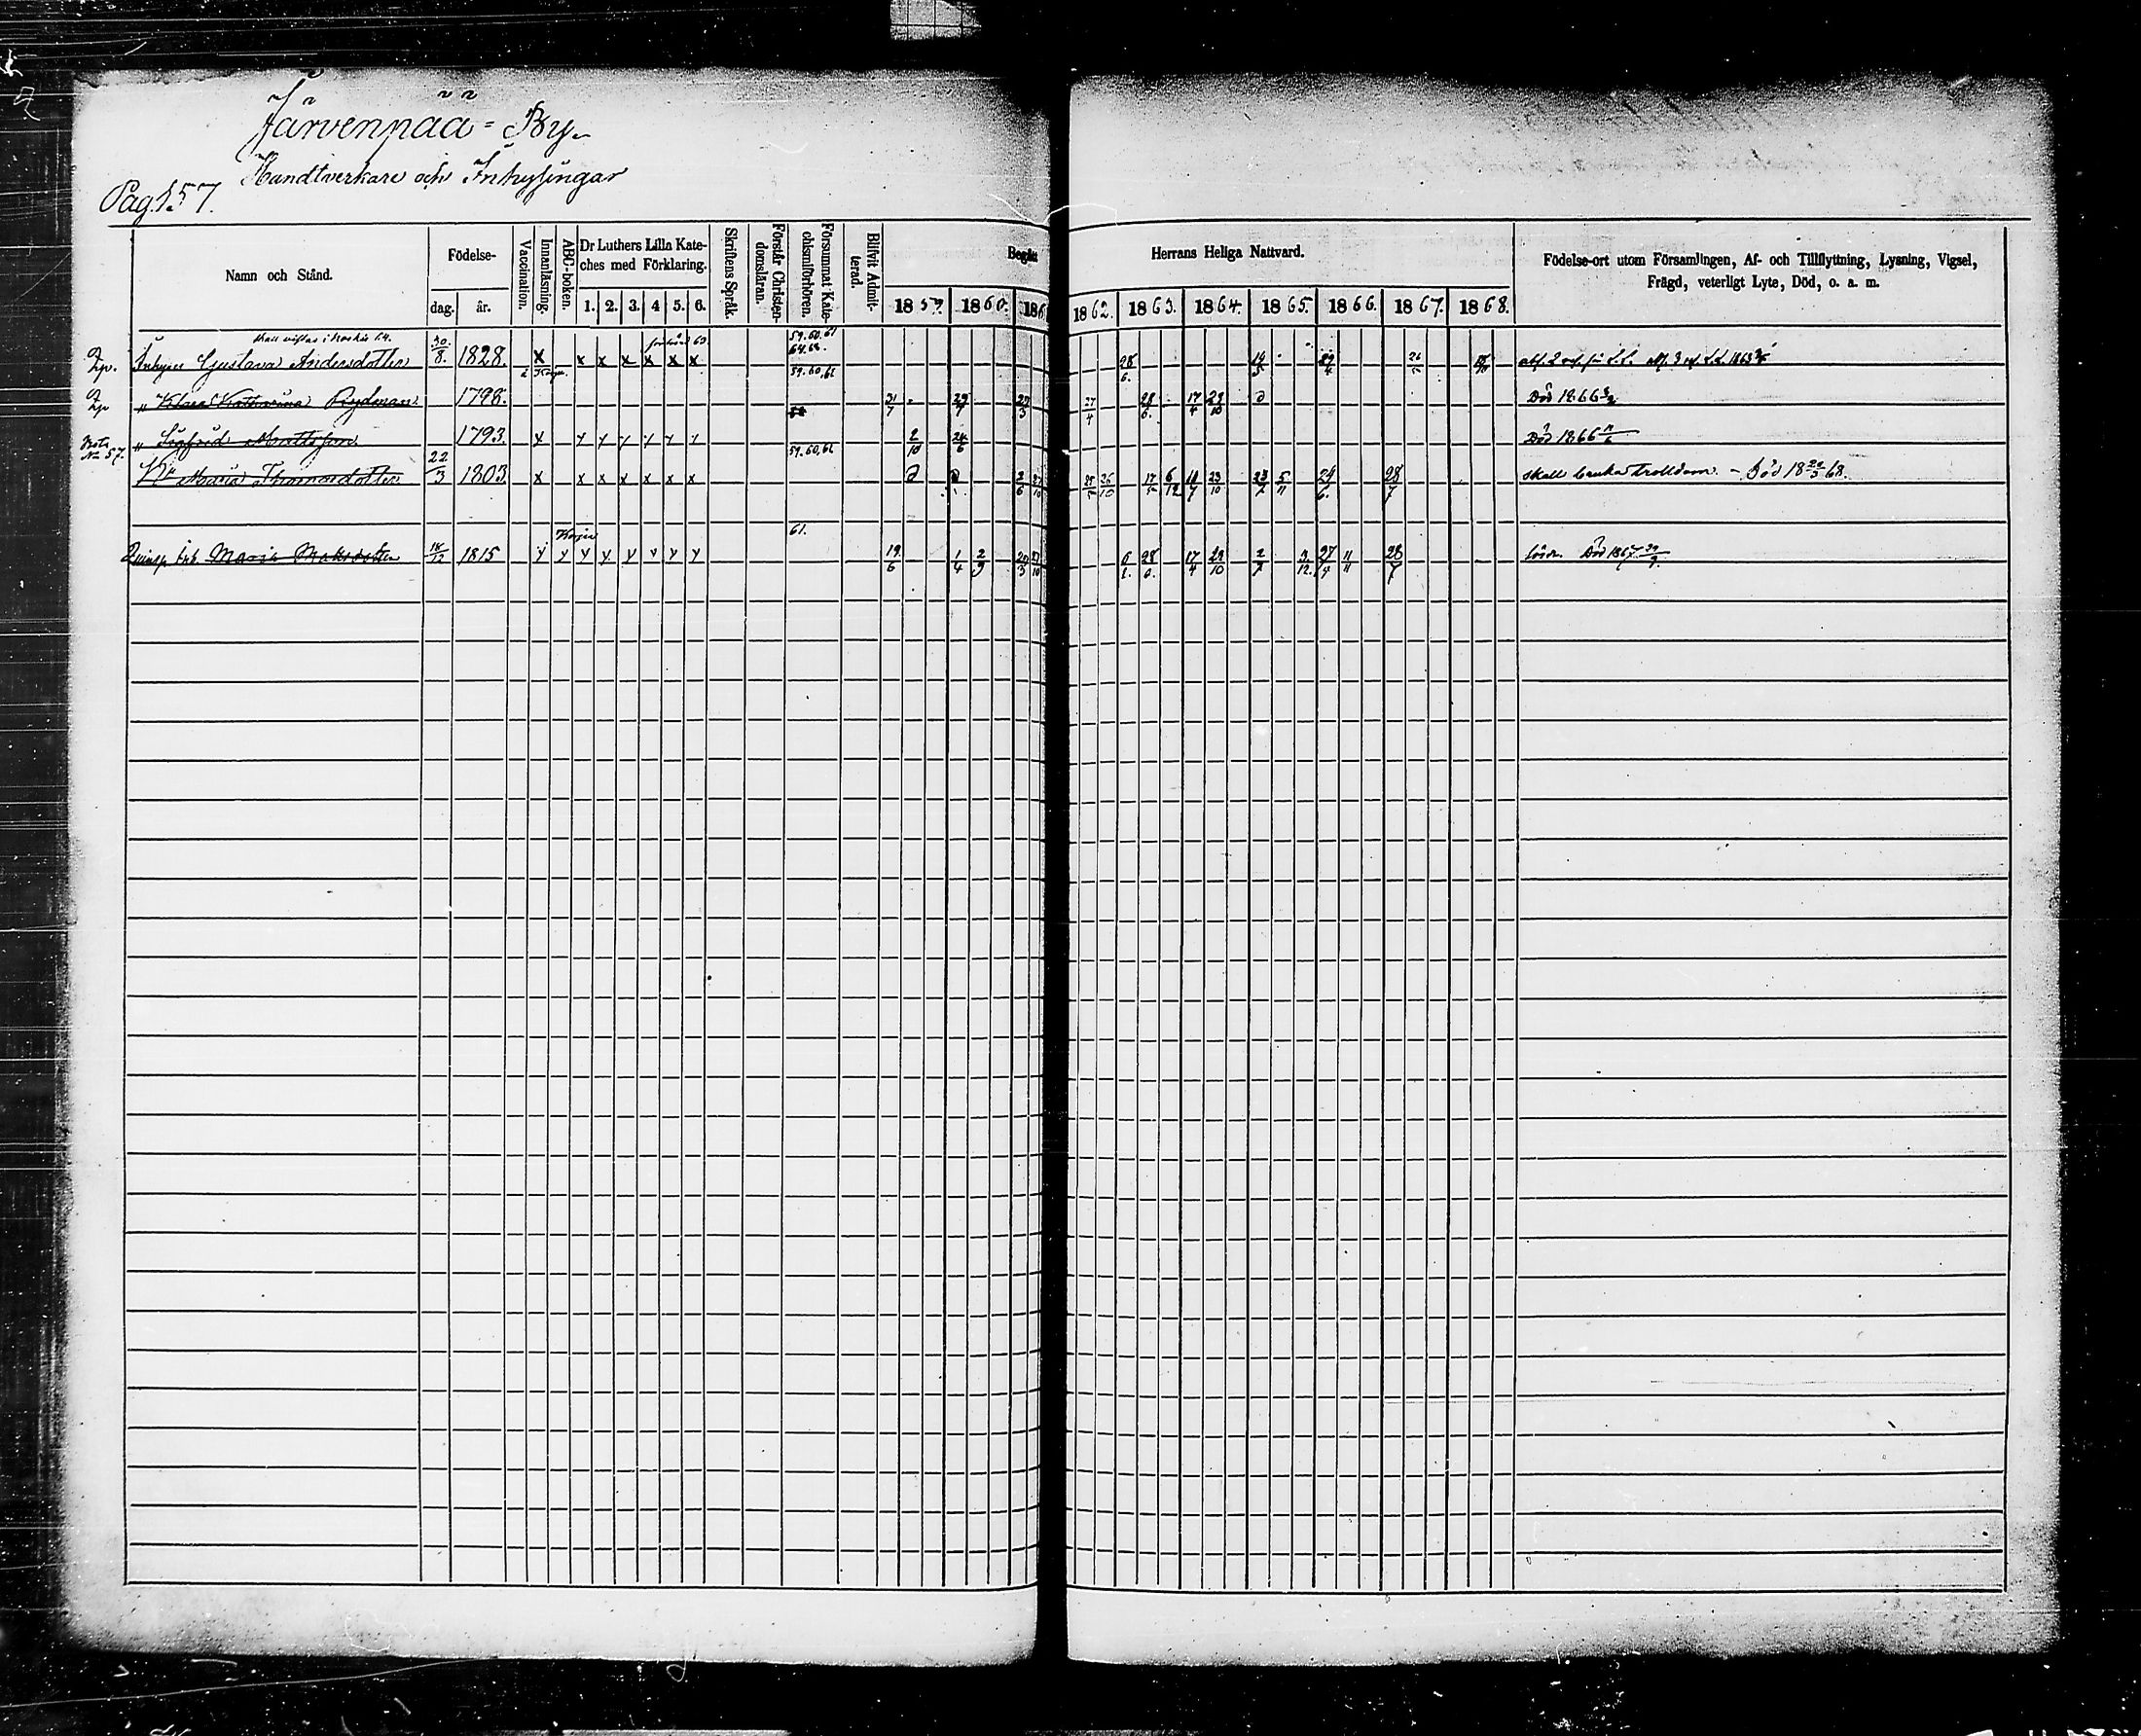 Järvenpää=By.
Handtverkare och Inhysingar
Pag. 157.
Namn och Stånd. Födelse- dag. år. Vaccination. Innanläsning. ABC-boken. Dr Luthers Lilla Kate-ches med Förklaring. 1. 2. 3. 4 5. 6. Skriftens Språk. Förstår Christen-domsläran. Försummat Kate-chismiförhören. Blifvit Admit-terad. Begått Herrans Heliga Nattvard. 1859. 1860. 186 1862. 1863. 1864. 1865. 1866. 1867. 1868. Födelse-ort utom Församlingen, Af- och Tillflyttning, Lysning, Vigsel, Frägd, veterligt Lyte, Död, o. a. m.
59.60.61
64.68.
Inhyses Gustava Andersdotter 30/8. 1828. x x x x x x x 28/6. 14/5 29/4 26/5
59.60,61
" Klara Katharina Rydman 1798. 31/7 29/7 27/4 28/6. 17/4 29/10 Död 1866
" Sigfrid Mattsson 1793. y y y y y y y 2/10 24/6 Död 1866
No 57. 59.60,61
Maria Thomasdotter 22/3 1803. x x x x x x x 2/6 26/10 6/12 23/10 23/7 5/11 24/6. 28/7 skall bruka trolldom. - Död 18 20/3 68.
61.
Inh. Maria Matsdotter 1815 y y y y y y y 19/6 1/4 2/9 28/6. 17/4 29/10 2/7 27/4 11/11 28/7 Död 1867